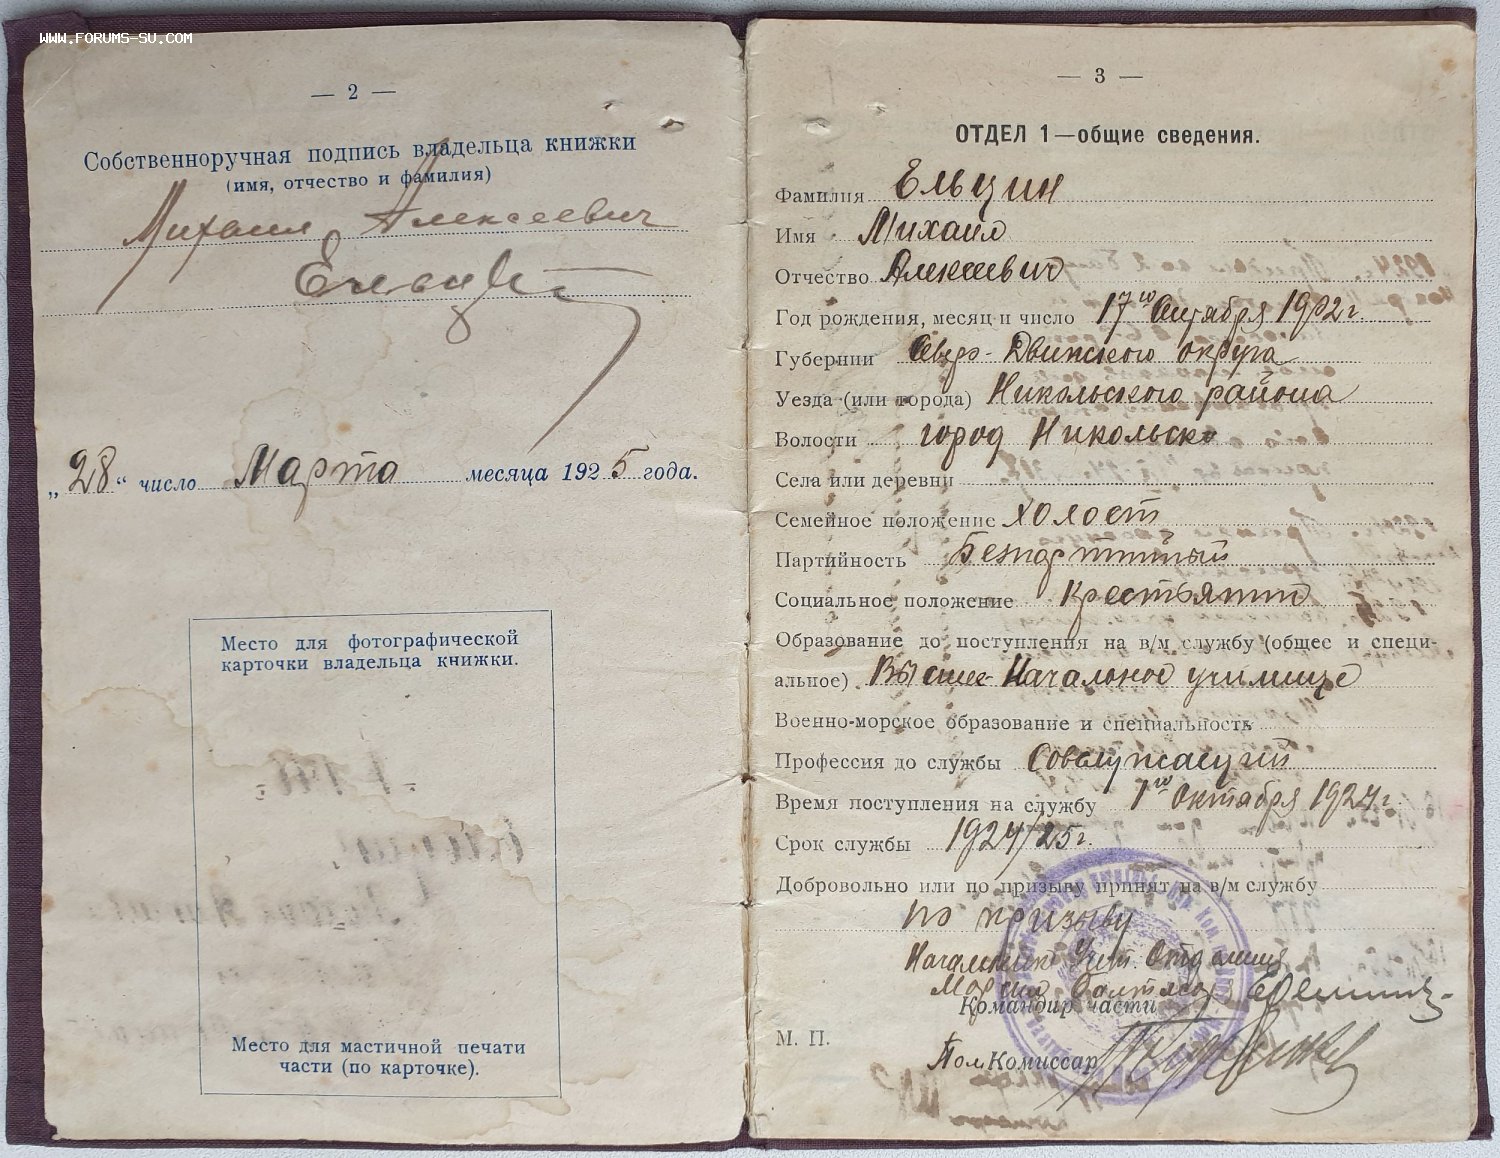 WWW.FORUMS-SU.COM
— 2 —
Собственноручная подпись владельца книжки
(имя, отчество и фамилия)
Михаил Алексеевич
Ельцин
„28“ число Марта месяца 1925 года.
Место для фотографической
карточки владельца книжки.
Место для мастичной печати
части (по карточке).
— 3 —
ОТДЕЛ 1—общие сведения.
Фамилия Ельцин
Имя Михаил
Отчество Алексеевич
Год рождения, месяц и число 17го Октября 1902 г.
Губернии Северо-Двинского округа
Уезда (или города) Никольского района
Волости город Никольск
Села или деревни
Семейное положение холост
Партийность Безпартийный
Социальное положение Крестьянин
Образование до поступления на в/м службу (общее и специ-
альное) Высшее Начальное училище
Военно-морское образование и специальность
Профессия до службы Совслужащий
Время поступления на службу 1го Октября 1924 г.
Срок службы 1924/25 г.
Добровольно или по призыву принят на в/м службу
по призыву
Начальник Учет. Отделения
Командир части
М. П.
Пом Комиссар